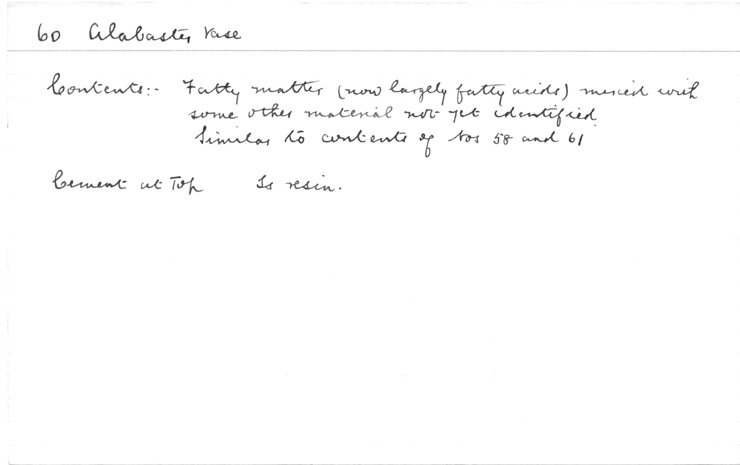 60 Alabaster Vase
Contents:- Fatty matter (now largely fatty acids) mixed with
some other material not yet identified.
Similar to contents of Nos 58 and 61
Cement at Top Is resin.